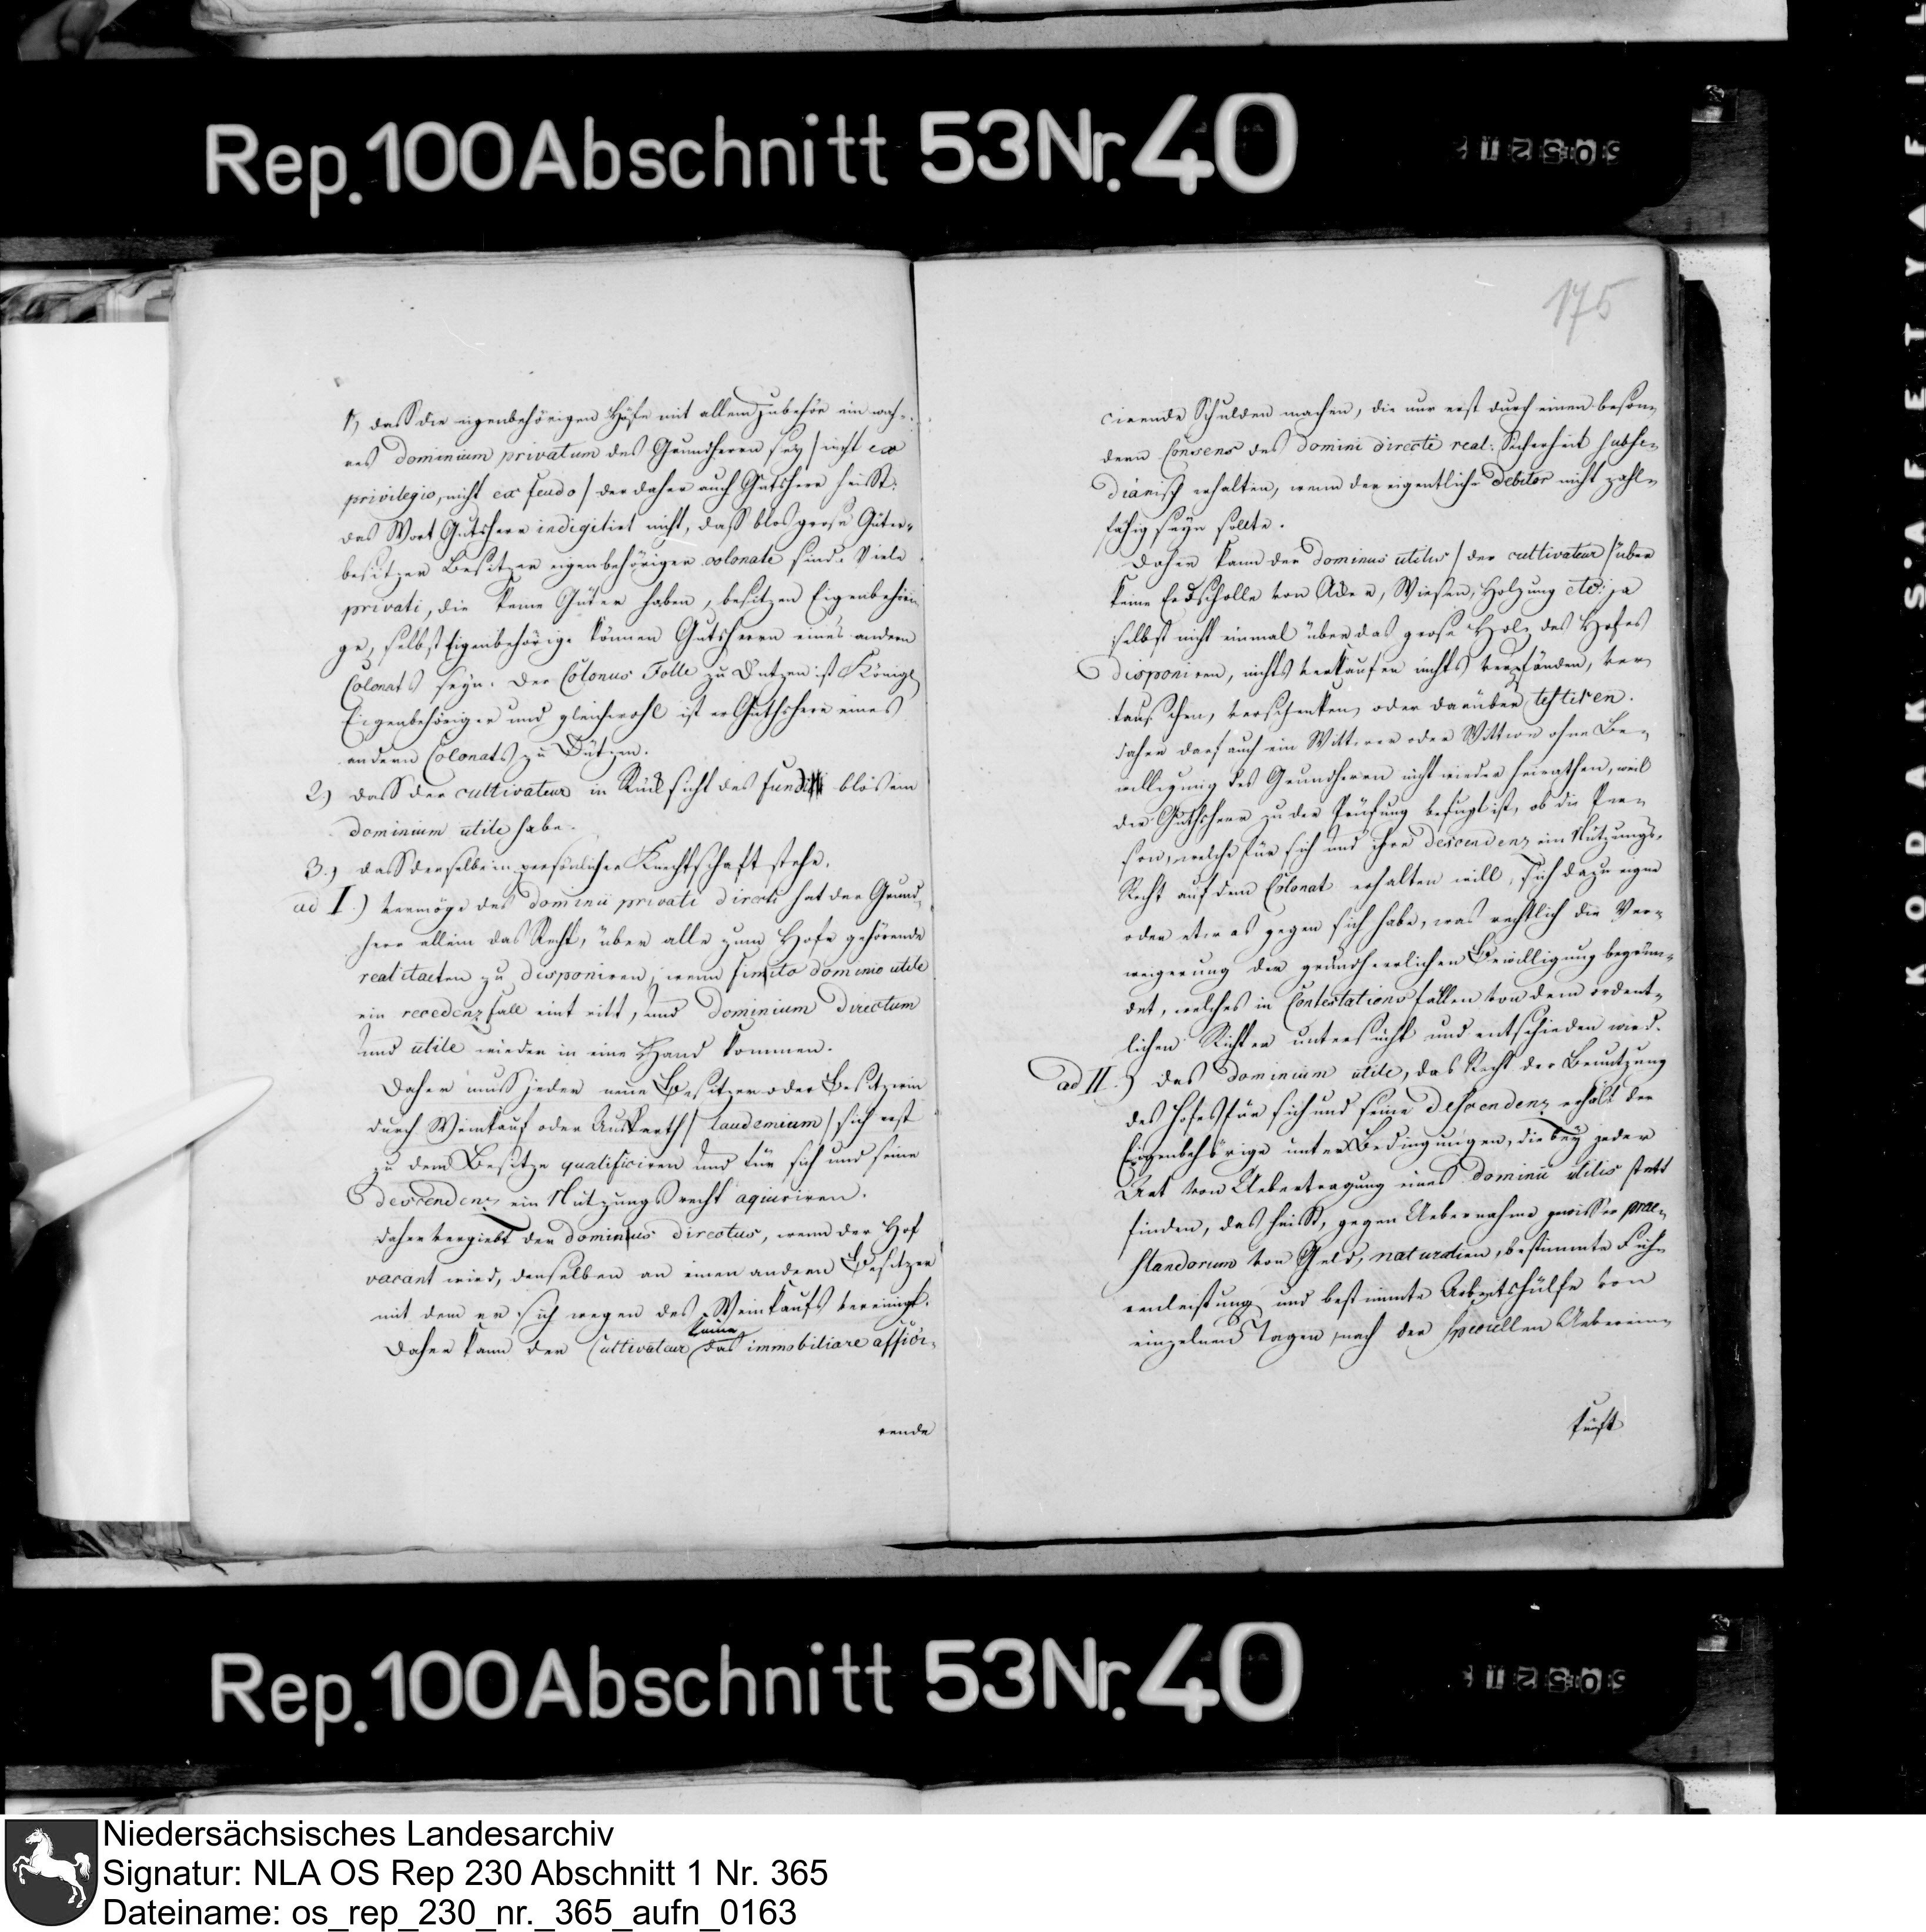 Rep. 100 Abschnitt 53 Nr. 40
175
1, daß die eigenbehörigen Höfe mit allem Zubehör ein wah-
res dominium privatum des Grundherrn sey / nicht ex
privilegio, nicht ex feudo / der daher auch Gutsherr heißt.
das Wort Gutsherr indigitirt nicht, daß blos große Güter-
besitzer Besitzer eigenbehöriger colonate sind. Viele
privati, die keine Güter haben, besitzen Eigenbehöri-
ge, selbst Eigenbehörige können Gutsherrn eines andern
Colonats seyn. Der Colonus Folle zu Dutzen ist Königl
Eigenbehöriger und gleichwohl ist er Guthsherr eines
andern Colonats zu Dützen.
2, daß der cultivateur in Rücksicht des fundi blos ein
dominium utile habe.
3., daß derselbe in persönlicher Knechtschaft stehe.
ad I.) vermöge des dominii privati directi hat der Grund-
herr allein das Recht, über alle zum Hofe gehörende
realitaeten zu disponiren, wenn finito dominio utile
ein recedenzfall eintritt, und dominium directum
und utile wieder in eine Hand kommen.
Daher muß jeder neue Besitzer oder Besitzerin
durch Weinkauf oder / Laudemium / sich erst
zu dem Besitze qualificiren und für sich und seine
descendenz ein Nutzungsrecht aquiriren.
daher vergiebt der dominus directus, wenn der Hof
vacant wird, denselben an einen andern Besitzer
mit dem er sich wegen des Weinkaufs vereinigt.
keine
Daher kann der Cultivateur das immobiliare affici-
rende
cirende Schulden machen, die nur erst durch einen beson-
dern Consens des domini directi real: Sicherheit subsi-
diarisch erhalten, wenn der eigentliche Debitor nicht zahl-
fähig seyn sollte.
Daher kann der dominus utilis / der cultivateur / über
keine Erdscholle von Acker, Wiesen, Holzung etc: ja
selbst nicht einmal über das große Holz des Hofes
disponiren, nichts verkaufen nichts verpfänden, ver-
tauschen, verschenken, oder darüber testiren.
daher darf auch ein Wittwer oder Wittwe ohne Be-
willigung des Grundherrn nicht wieder heirathen, weil
der Guthsherr zu der Prüfung befugt ist, ob die Per-
son, welche für sich und ihre descendenz ein Nutzungs-
Recht auf dem Colonat erhalten will, sich dazu eigne
oder etwas gegen sich habe, was rechtlich die Ver-
weigerung der grundherrlichen Bewilligung begrün-
det, welches in Contestations fällen von dem ordent-
lichen Richter untersucht und entschieden wird.
ad II.) das dominium utile, das Recht der Benutzung
des Hofes für sich und seine descendenz erhält der
Eigenbehörige unter Bedingungen, die bey jeder
Art von Uebertragung eines dominii utilis statt
finden, das heißt, gegen Uebernahme gewisser prae-
standorum von Geld, naturalien, bestimmte Fuh-
renleistung und bestimmte Arbeitshülfe von
einzelnen Tagen, nach der speciellen Ueberein-
kunft
Rep. 100 Abschnitt 53 Nr. 40
KODAK SAFETY FIL
Niedersächsisches Landesarchiv
Signatur: NLA OS Rep 230 Abschnitt 1 Nr. 365
Dateiname: os_rep_230_nr._365_aufn_0163